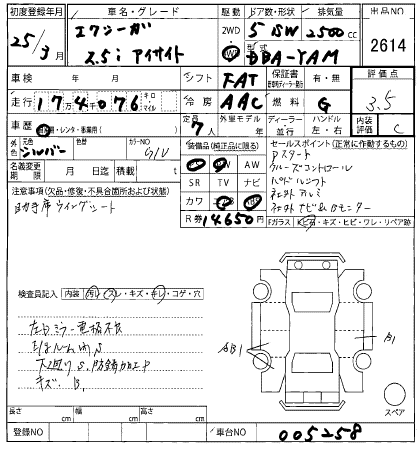 初度登録年月 車名・グレード 駆動 ドア数・形状 排気量 出品NO
25年 3月 エクシーガ 2WD 5 SW 2500 cc 2614
2.5i アイサイト 4WD 型式 DBA-YAM
車検 年 月 シフト FAT 保証書 有・無 評価点
走行 17万4千076 キロ マイル 冷房 AAC 燃料 G 3.5
車歴 自家用・レンタ・事業用 定員 7人 外車モデル 年 ディーラー 並行 ハンドル 左・右 内装評価 C
外色 元色 シルバー 色替 カラーNO G1U 装備品(純正品に限る) セールスポイント(正常に作動するもの)
名義変更期限 月 日 月 日迄 積載量 t PS SR AW Pスタート
SR TV ナビ クルーズコントロール
注意事項(欠品・修復・不具合箇所および状態) カワ パドルシフト
助手席ウイングシート R券 14,650円 社外アルミ
社外ナビ&Bモニター
Fガラス キズ・ヒビ・ワレ・リペア跡
検査員記入 内装 汚れ・スレ・キズ・キレ・コゲ・穴
左ドアミラー電格不良
AB1
B1
下廻りS,防錆加工P
キズ、B,
スペア
長さ cm 幅 cm 高さ cm
登録NO 車台NO 005258